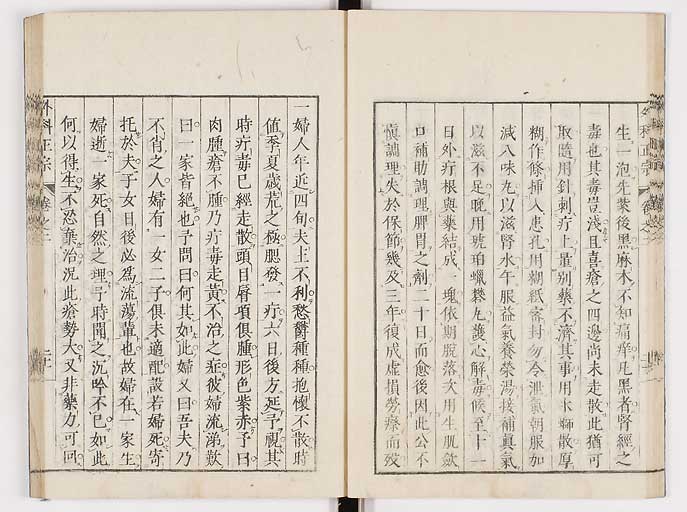 外科正宗 卷之二
生一泡先薬後黒麻木不知痛痒凡黒者腎經之
毒也其毒豈淺且喜瘡之四邊尚未走散此猶可
取隨用針刺疔上量別藥不濟其事用氷螄散厚
糊作條挿入患孔用糊紙密封勿令泄氣朝服加
減八味丸以滋腎水午服益氣養榮湯接補眞氣
以滋不足晩用琥珀蠟礬丸護心觧毒候至十一
日外疔根與藥結成一塊依期脱落次用生肌歛
口補助調理脾胃之劑二十日而愈後因此公不
愼調理失於保節幾及三年復成虚損勞瘵而歿
一婦人年近四旬夫主不利愁欝種種抱懷不散時
値季夏歳荒之極腮發一疔六日後方延予視其
時疔毒已經走散頭目唇項倶腫形色紫赤予曰
肉腫瘡不腫乃疔毒走黄不治之症彼婦流涕歎
曰一家皆絶也予問曰何其如此婦又曰吾夫乃
不肖之人婦有一女二子倶未適配設若婦死寄
托於夫子女日後必爲流蕩輩也故婦在一家生
婦逝一家死自然之理予時聞之沉吟不已如此
何以得生不忍棄治况此瘡勢大又非藥力可回
外科正宗 卷之二 二十